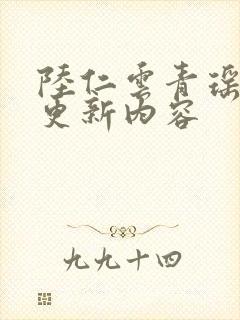 陸仁雲青瑶
更新内容
九九十四